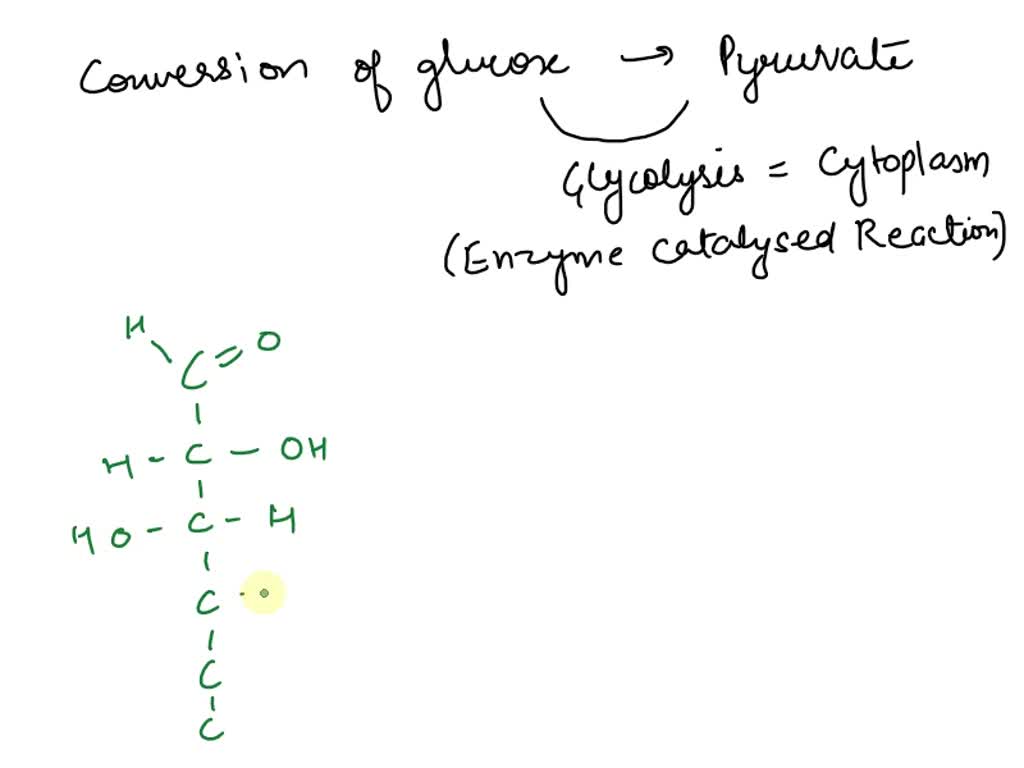 Conversion of glucose → Pyruvate
Glycolysis = Cytoplasm
(Enzyme Catalysed Reaction)
H
C = O
H - C - OH
HO - C - H
C -
C
C